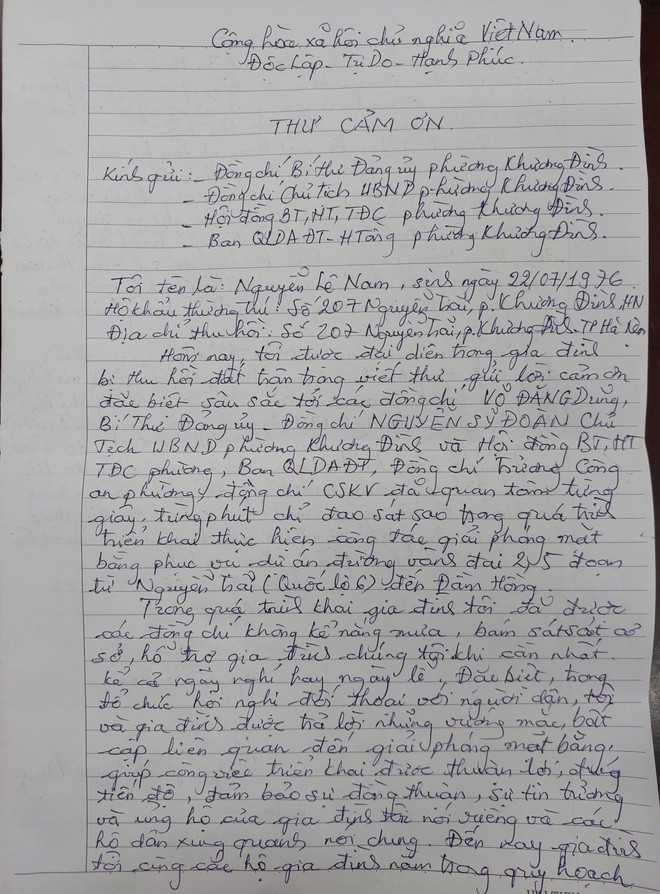 Cộng hòa xã hội chủ nghĩa Việt Nam
Độc Lập - Tự Do - Hạnh Phúc.
THƯ CẢM ƠN
Kính gửi: - Đồng chí Bí thư Đảng ủy phường Khương Đình.
- Đồng chí Chủ tịch UBND phường Khương Đình.
- Hội đồng BT, HT, TĐC phường Khương Đình.
- Ban QLDA ĐT-HTầng phường Khương Đình.
Tôi tên là: Nguyễn Lê Nam, sinh ngày 22/07/1976
Hộ khẩu thường trú: Số 207 Nguyễn Trãi, p. Khương Đình, HN
Địa chỉ thu hồi: Số 207 Nguyễn Trãi, p. Khương Đình. TP Hà Nội
Hôm nay, tôi được đại diện trong gia đình
bị thu hồi đất trân trọng viết thư gửi lời cảm ơn
đặc biệt sâu sắc tới các đồng chí VÕ ĐĂNG Dũng,
Bí Thư Đảng ủy - Đồng chí NGUYỄN SỸ ĐOÀN Chủ
Tịch UBND phường Khương Đình và Hội đồng BT, HT
TĐC phường, Ban QLDAĐT, Đồng chí Trưởng Công
an phường, đồng chí CSKV đã quan tâm từng
giây, từng phút chỉ đạo sát sao trong quá trình
triển khai thực hiện công tác giải phóng mặt
bằng phục vụ dự án đường vành đai 2,5 đoạn
từ Nguyễn Trãi (Quốc lộ 6) đến Đầm Hồng.
Trong quá trình khai gia đình tôi đã được
các đồng chí không kể nắng mưa, bám sát sát cơ
sở, hỗ trợ gia đình chúng tôi khi cần nhất.
kể cả ngày nghỉ hay ngày lễ, Đặc biệt, trong
tổ chức hội nghị đối thoại với người dân, tôi
và gia đình được trả lời những vướng mắc, bất
cập liên quan đến giải phóng mặt bằng,
giúp công việc triển khai được thuận lợi, đúng
tiến độ, đảm bảo sự đồng thuận, sự tin tưởng
và ủng hộ của gia đình tôi nói riêng và các
hộ dân xung quanh nói chung. Đến nay gia đình
tôi cùng các hộ gia đình nằm trong quy hoạch